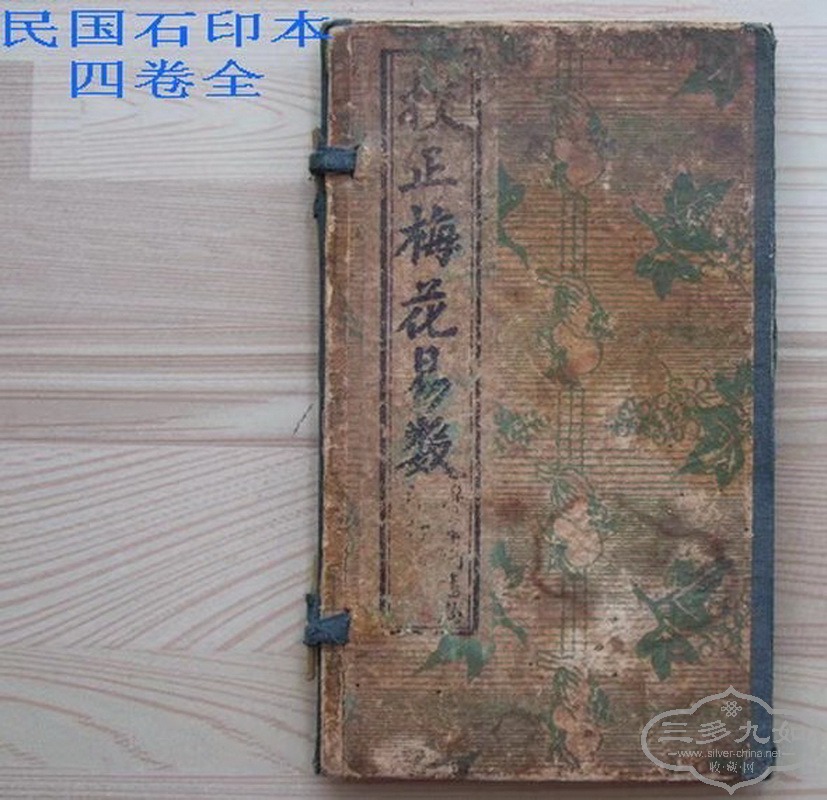 民国石印本
四卷全
校正梅花易数
三多九如
www.silver-china.net
收·藏·网